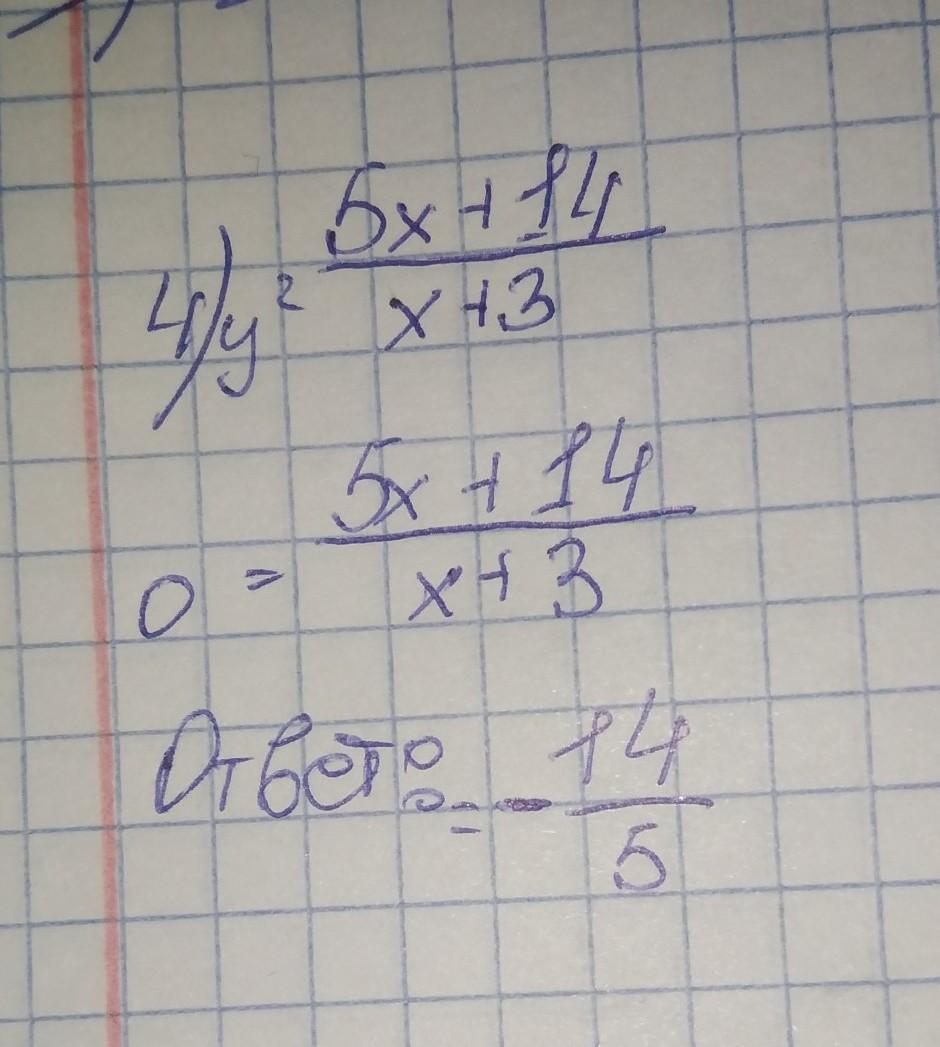 4) y = (5x + 14)/(x + 3)
0 = (5x + 14)/(x + 3)
Ответ: = - 14/5